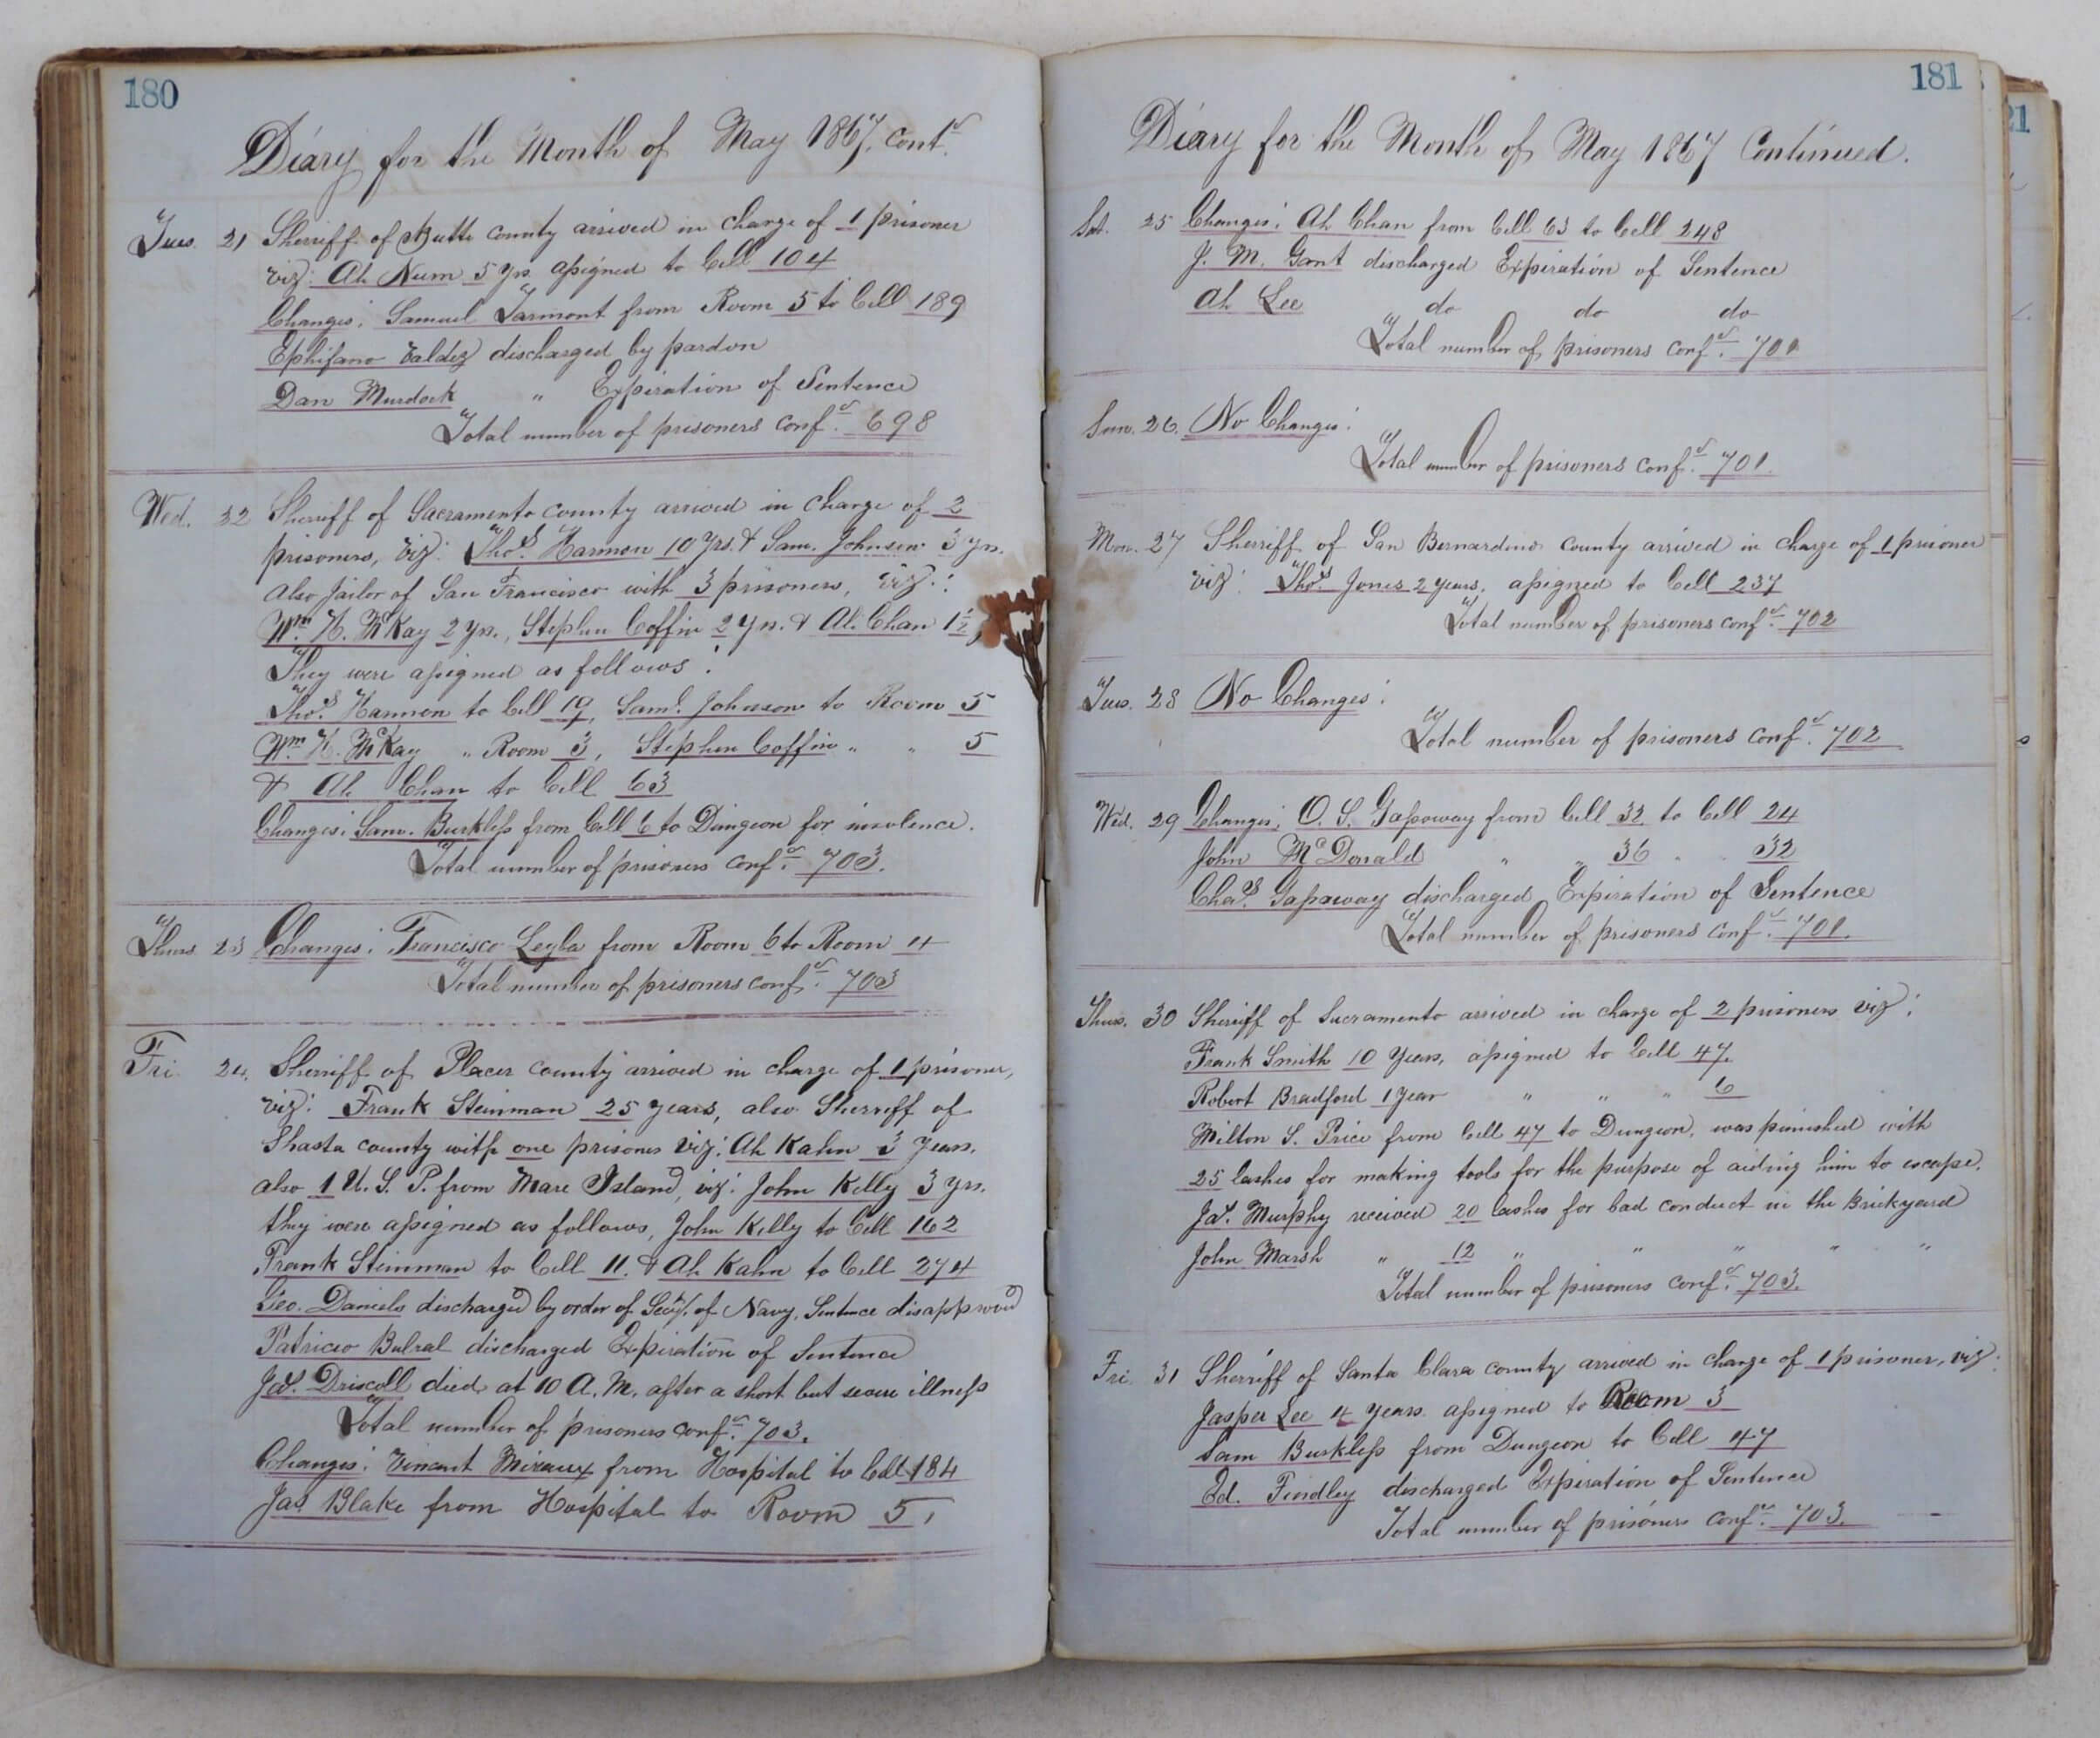 180
Diary for the Month of May 1867. Contd.
Tues. 21 Sherriff of Butte county arrived in charge of 1 prisoner
viz: Ah Num 5 yrs. assigned to Cell 104
Changes: Samuel Tarmont from Room 5 to Cell 189
Ephifano Valdez discharged by pardon
Dan Murdock " Expiration of Sentence
Total number of prisoners confd. 698
Wed. 22 Sherriff of Sacramento county arrived in charge of 2
prisoners, viz: Thos. Harmon 10 yrs. & Sam. Johnson 3 yrs.
also Jailor of San Francisco with 3 prisoners, viz.:
Wm. H. McKay 2 yrs., Stephen Coffin 2 yrs. & Ah Chan 1½,
They were assigned as follows:
Thos. Harmon to Cell 19, Saml. Johnson to Room 5
Wm. H. McKay " Room 3, Stephen Coffin " " 5
& Ah Chan to Cell 63
Changes: Sam. Burkless from Cell 6 to Dungeon for insolence.
Total number of prisoners confd. 703.
Thurs 23 Changes: Francisco Leyla from Room 6 to Room 4
Total number of prisoners confd. 703
Fri. 24. Sherriff of Placer county arrived in charge of 1 prisoner,
viz: Frank Steinman 25 years, also Sherriff of
Shasta county with one prisoner viz: Ah Kahn 3 years.
also 1 U. S. P. from Mare Island, viz: John Kelly 3 yrs.
they were assigned as follows, John Kelly to Cell 162
Frank Steinman to Cell 11. & Ah Kahn to Cell 274
Geo. Daniels discharged by order of Secty. of Navy, Sentence disapproved
Patricio Bulral discharged Expiration of Sentence
Jas. Driscoll died at 10 A.M. after a short but severe illness
Total number of prisoners confd. 703.
Changes: Vincent Miraux from Hospital to Cell 184
Jas Blake from Hospital to Room 5,
181
Diary for the Month of May 1867 Continued.
Sat. 25 Changes: Ah Chan from Cell 63 to Cell 248
J. M. Gant discharged Expiration of Sentence
Ah Lee do do do
Total number of prisoners confd. 701
Sun. 26. No Changes:
Total number of prisoners confd. 701.
Mon. 27 Sherriff of San Bernardino county arrived in charge of 1 prisoner
viz: Thos. Jones 2 years, assigned to Cell 237
Total number of prisoners confd. 702
Tues. 28 No Changes:
Total number of prisoners confd. 702
Wed. 29 Changes: O. S. Gassoway from Cell 32 to Cell 24
John McDonald " " 36 " " 32
Chas. Gassaway discharged Expiration of Sentence
Total number of prisoners confd. 701.
Thurs. 30 Sherriff of Sacramento arrived in charge of 2 prisoners viz:
Frank Smith 10 years, assigned to Cell 47.
Robert Bradford 1 year " " " 6
Milton S. Price from Cell 47 to Dungeon, was punished with
25 lashes for making tools for the purpose of aiding him to escape.
Jas. Murphy received 20 lashes for bad conduct in the Brickyard
John Marsh " 12 " " " " "
Total number of prisoners confd. 703.
Fri. 31 Sherriff of Santa Clara county arrived in charge of 1 prisoner, viz:
Jasper Lee 4 years assigned to Room 3
Sam Burkless from Dungeon to Cell 47
Ed. Findley discharged Expiration of Sentence
Total number of prisoners confd. 703.
21